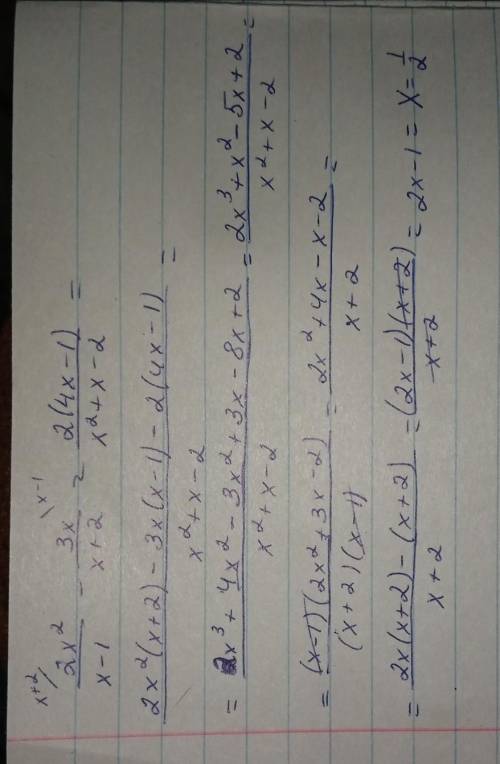 x+2/ \x-1
2x²/(x-1) - 3x/(x+2) = 2(4x-1)/(x²+x-2) =
(2x²(x+2) - 3x(x-1) - 2(4x-1))/(x²+x-2) =
= (2x³ + 4x² - 3x² + 3x - 8x + 2)/(x²+x-2) = (2x³ + x² - 5x + 2)/(x²+x-2) =
= ((x-1)(2x²+3x-2))/((x+2)(x-1)) = (2x² + 4x - x - 2)/(x+2) =
= (2x(x+2) - (x+2))/(x+2) = ((2x-1)(x+2))/(x+2) = 2x-1 = x = 1/2